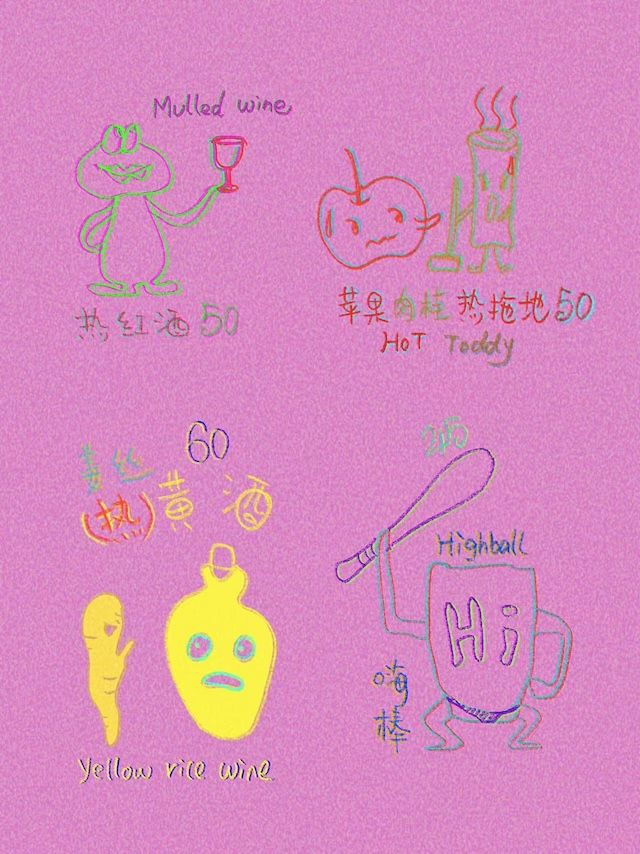 Mulled wine
热红酒 50
苹果肉桂热拖地 50
HoT Toddy
60
姜丝
(热)黄酒
Yellow rice wine
酒
Highball
Hi
嗨
棒